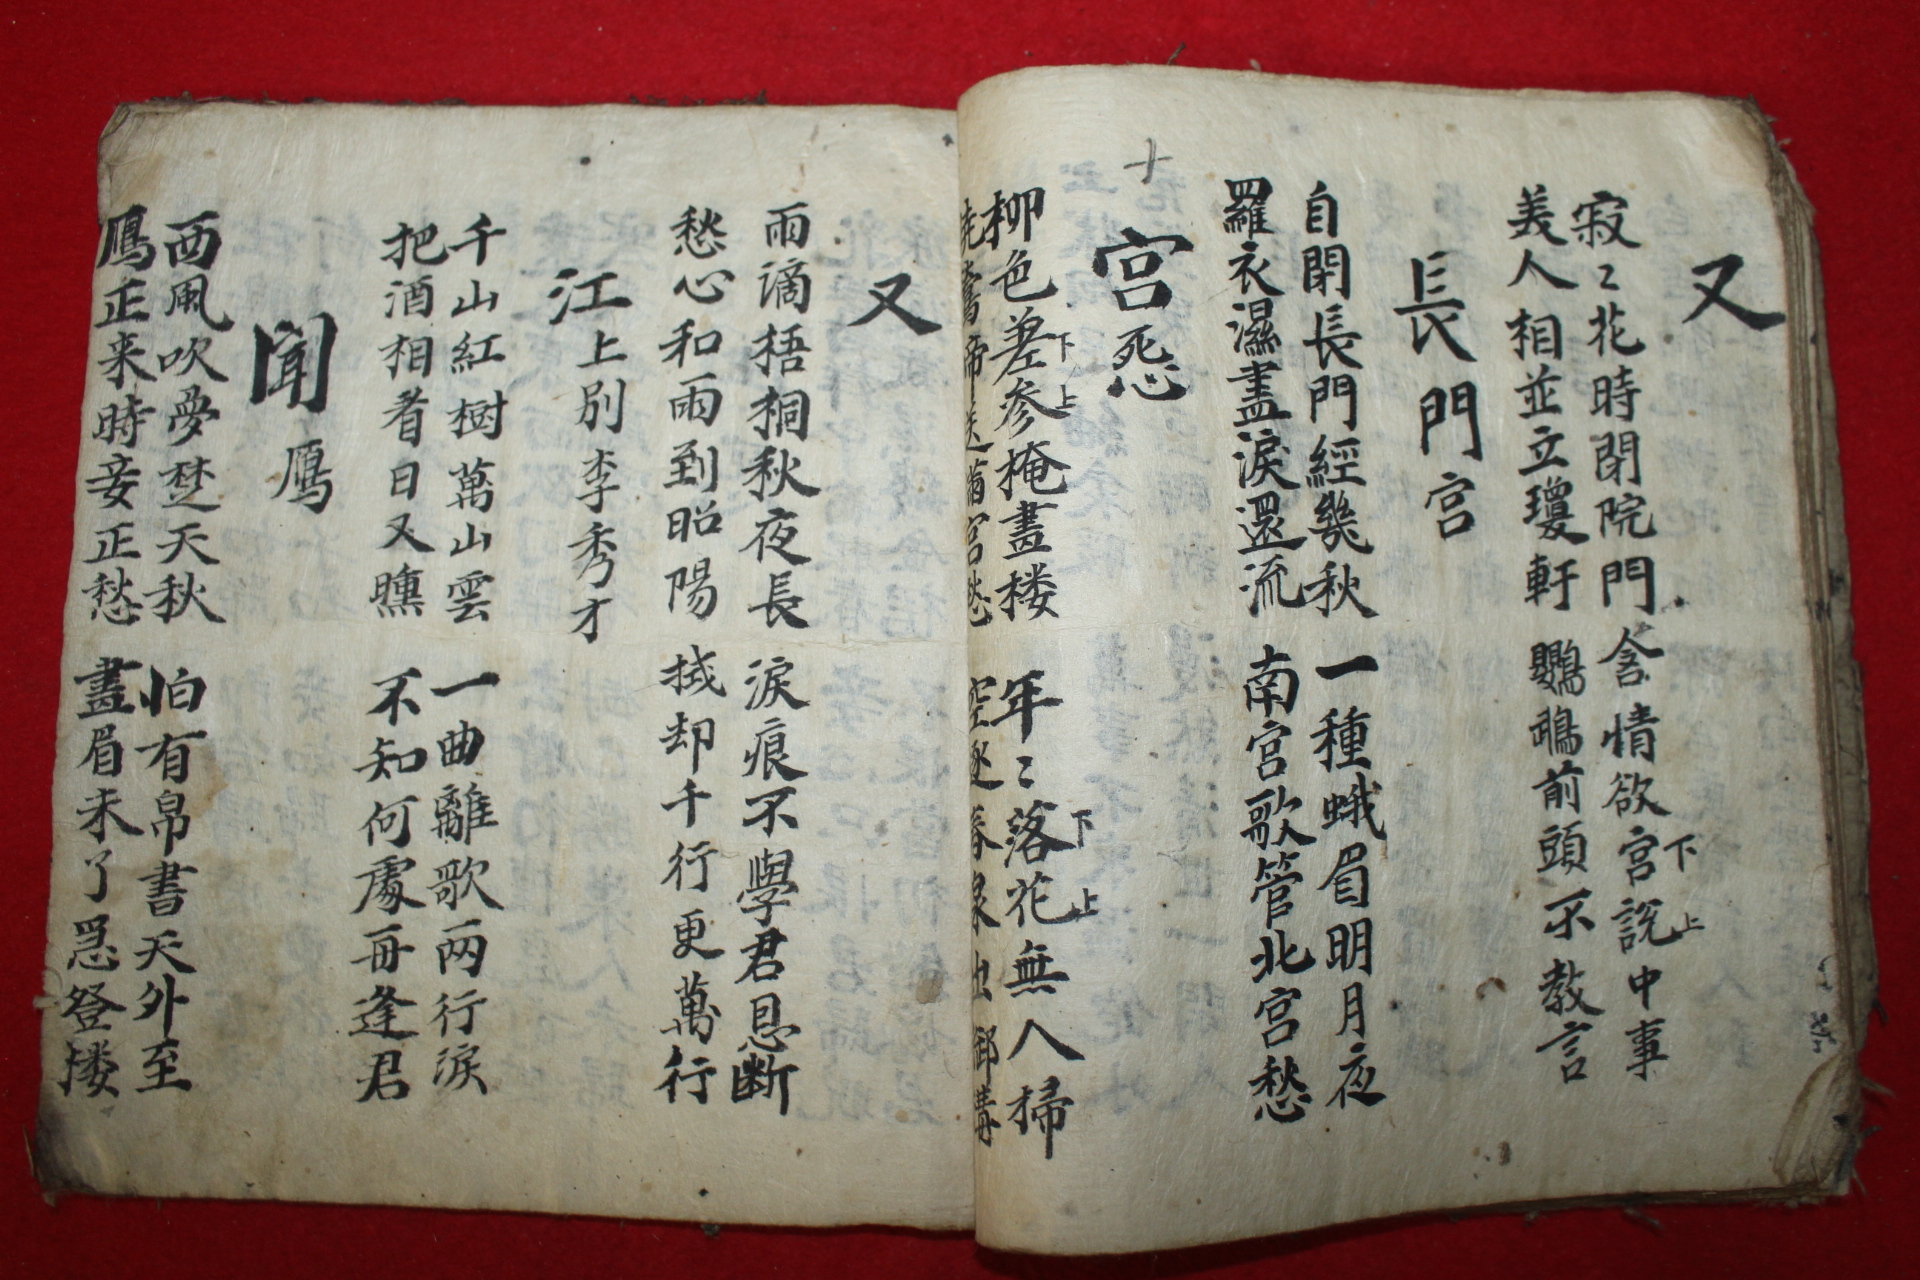 又
寂〻花時閉院門 含情欲宮說中事
下 上
美人相並立瓊軒 鸚鵡前頭不敎言
長門宮
自閉長門經幾秋 一種蛾眉明月夜
羅衣濕盡淚還流 南宮歌管北宮愁
十
宮怨
柳色差參掩畫楼 年〻落花無人掃
下 上 下 上
曉鶯啼送滿宮愁 空逐春泉出御溝
又
雨滴梧桐秋夜長 淚痕不學君恩斷
愁心和雨到昭陽 拭却千行更萬行
江上別李秀才
千山紅樹萬山雲 一曲離歌兩行淚
把酒相看日又曛 不知何處再逢君
聞鴈
西風吹夢楚天秋 怕有帛書天外至
鴈正来時妾正愁 畫眉未了急登楼